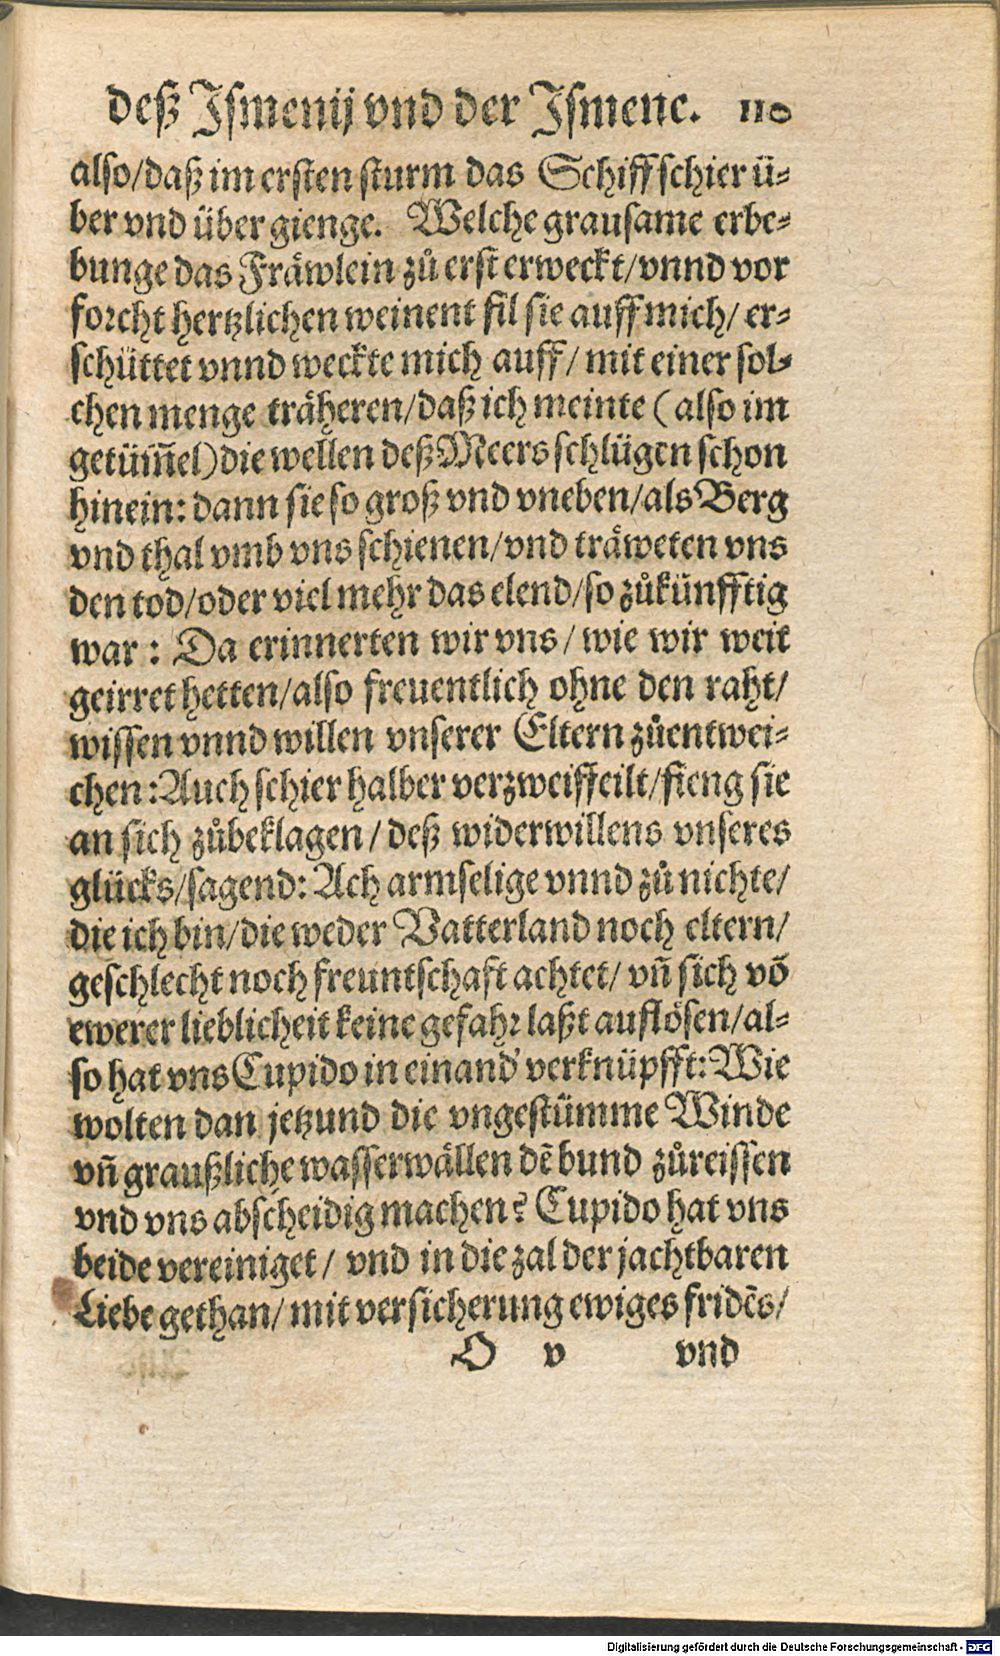 deß Ismenij vnd der Ismene. 110
also/daß im ersten sturm das Schiff schier ü⸗
ber vnd über gienge. Welche grausame erbe⸗
bunge das Fräwlein zů erst erweckt/vnnd vor
forcht hertzlichen weinent fil sie auff mich/ er⸗
schüttet vnnd weckte mich auff/ mit einer sol⸗
chen menge träheren/daß ich meinte (also im
getüm̃el) die wellen deß Meers schlügen schon
hinein: dann sie so groß vnd vneben/als Berg
vnd thal vmb vns schienen/vnd träweten vns
den tod/oder viel mehr das elend/so zůkünfftig
war: Da erinnerten wir vns/ wie wir weit
geirret hetten/also freuentlich ohne den raht/
wissen vnnd willen vnserer Eltern zůentwei⸗
chen: Auch schier halber verzweiffeilt/fieng sie
an sich zůbeklagen/ deß widerwillens vnseres
glücks/sagend: Ach armselige vnnd zů nichte/
die ich bin/die weder Vatterland noch eltern/
geschlecht noch freuntschaft achtet/ vñ sich võ
ewerer lieblicheit keine gefahr laßt auflösen/al⸗
so hat vns Cupido in einand' verknüpfft: Wie
wolten dan jetzund die vngestümme Winde
vñ graußliche wasserwällen dẽ bund zůreissen
vnd vns abscheidig machen? Cupido hat vns
beide vereiniget/ vnd in die zal der jachtbaren
Liebe gethan/ mit versicherung ewiges fridẽs/
O v vnd
Digitalisierung gefördert durch die Deutsche Forschungsgemeinschaft - DFG